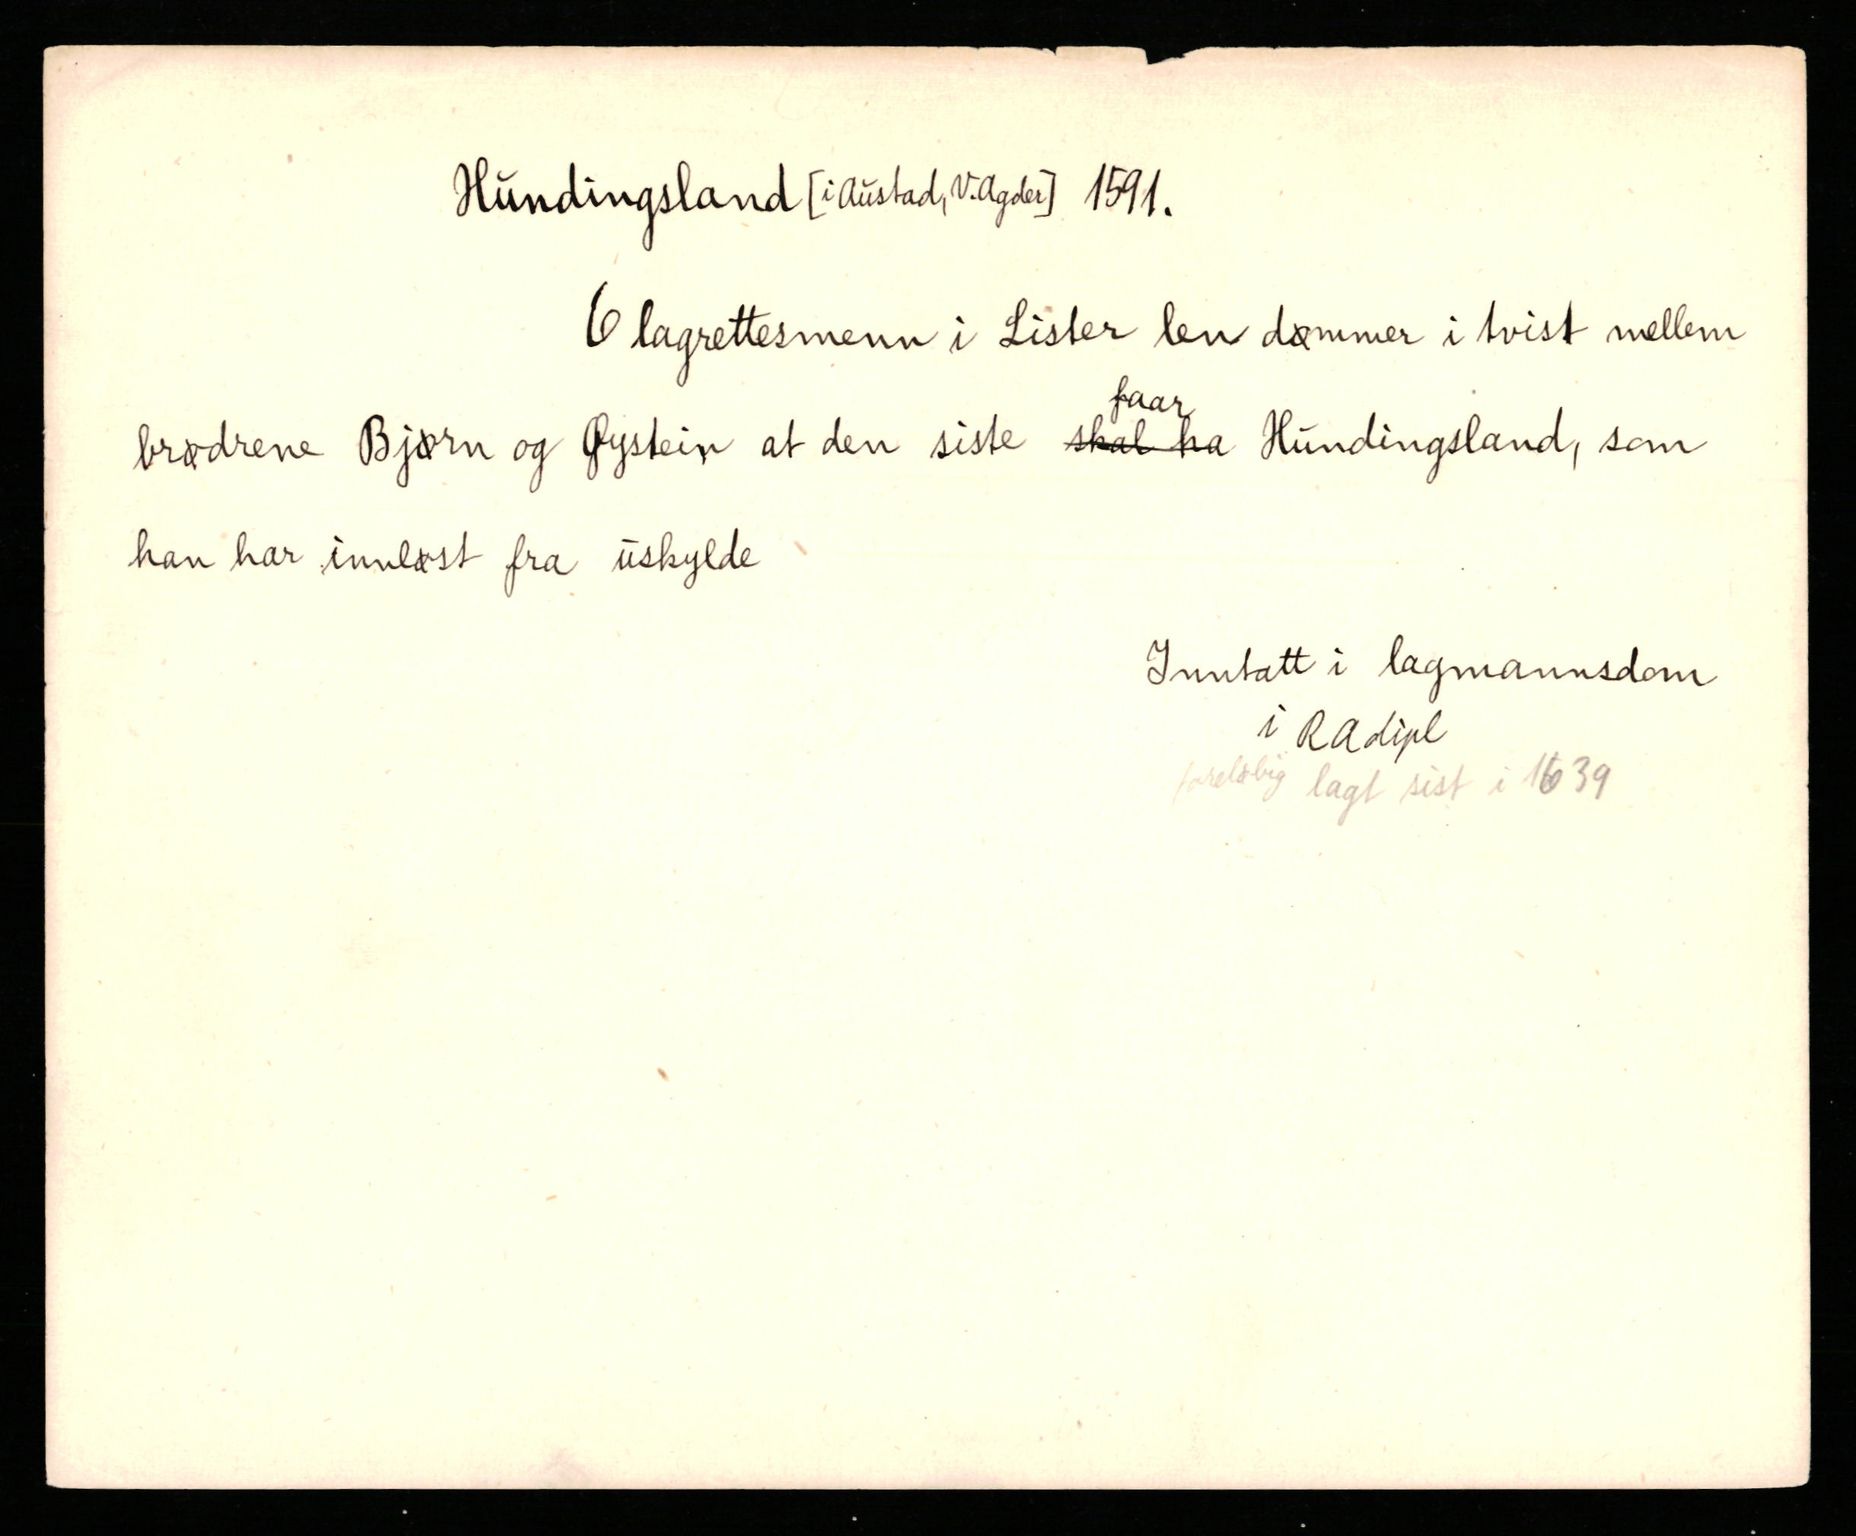 Hundingsland [i Austad, V. Agder] 1591.
6 lagrettesmenn i Lister len dømmer i tvist mellem
brødrene Bjørn og Øystein at den siste ~~skal ha~~ faar Hundingsland, som
han har innløst fra uskylde
Inntatt i lagmannsdom
i RAdipl
foreløbig lagt sist i 1639